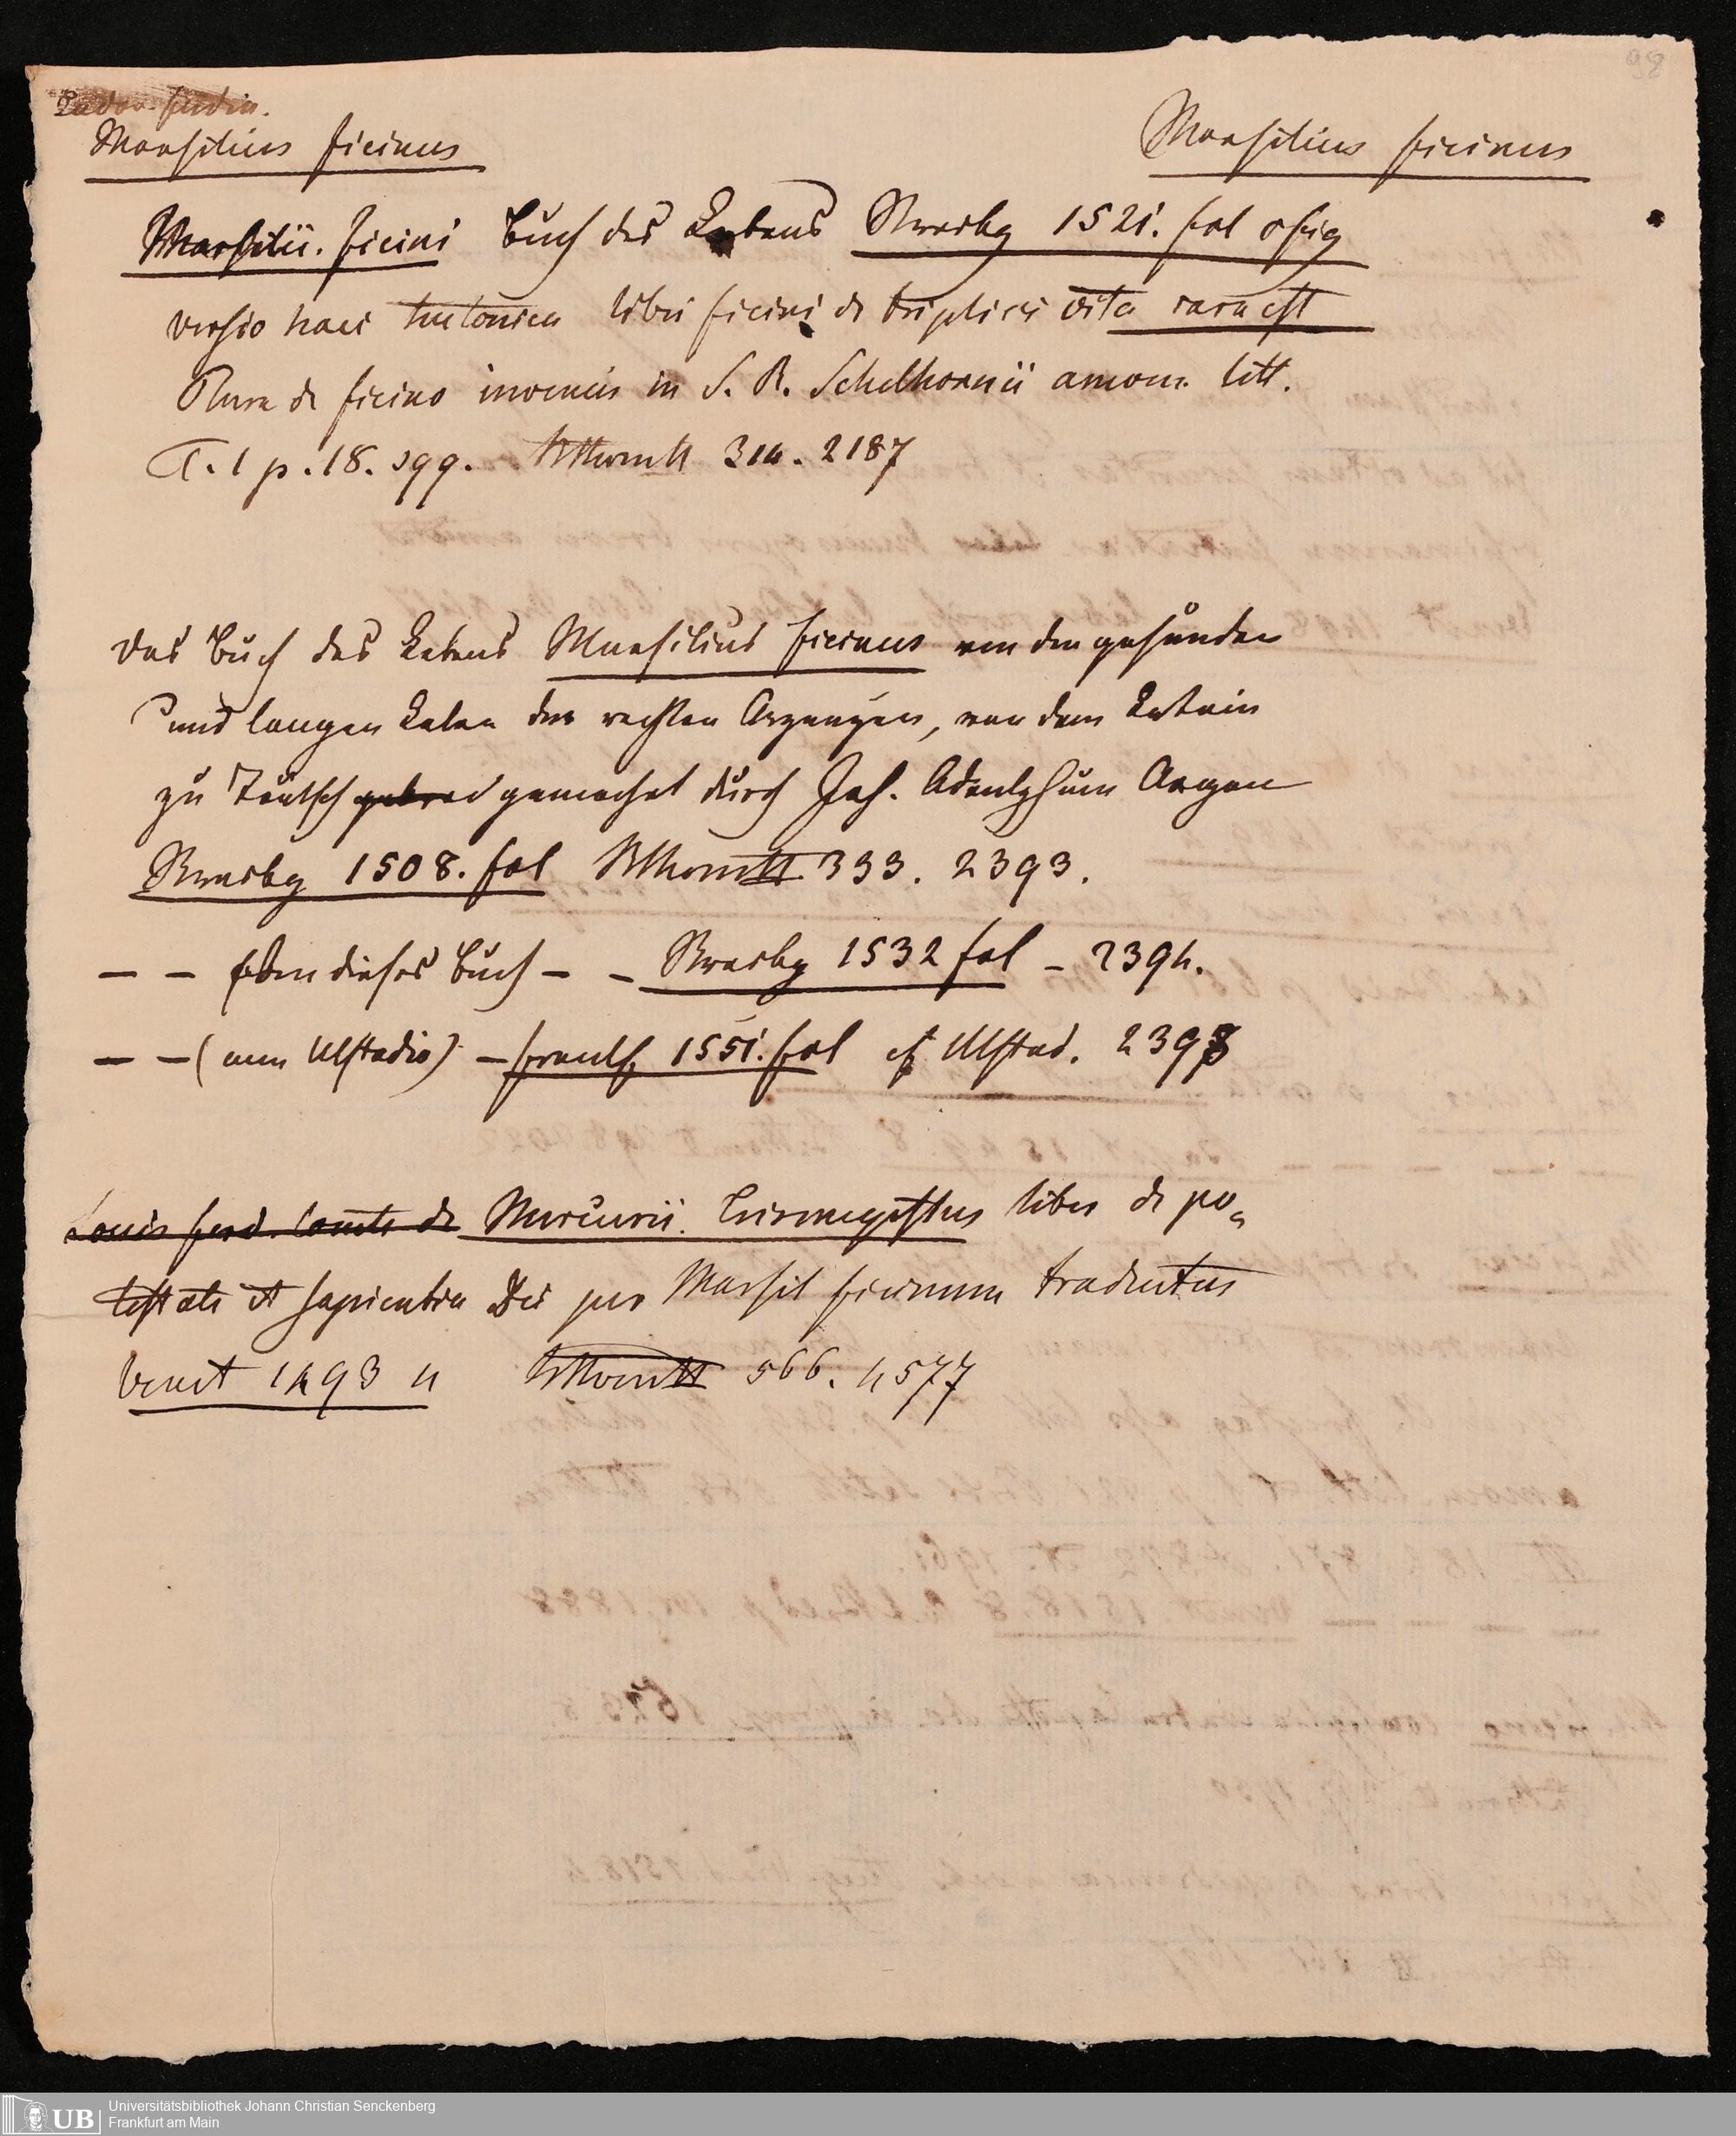 98
Marsilius Ficinus
Marsilius Ficinus
Marsilii. Ficini Buch des Lebens Strasbg 1521. fol c fig
versio haec teutonica libri Ficini de triplici vita rara est
Plura de Ficino invenies in S. R. Schelhornii amoen. litt.
T. 1 p. 18. sqq. 314. 2187
das Buch des Lebens Marsilius Ficinus von den gesunden
und langen Leben der rechten Arzneyen, von dem Latein
zu Teutsch gemachet durch Joh. Adolphum Argen
Strasbg 1508. fol 393. 2393.
– – eben dieses Buch – – Strasbg 1532 fol – 2394.
– – (cum Ulstadio) – Francf 1551. fol cf Ulstad. 2398
Louis Ferd. Comte de Mercurii. Trismegistus liber de po-
testate et sapientia Dei per Marsil Ficinum traductus
Venet 1493 4 566. 4577
UB Universitätsbibliothek Johann Christian Senckenberg
Frankfurt am Main